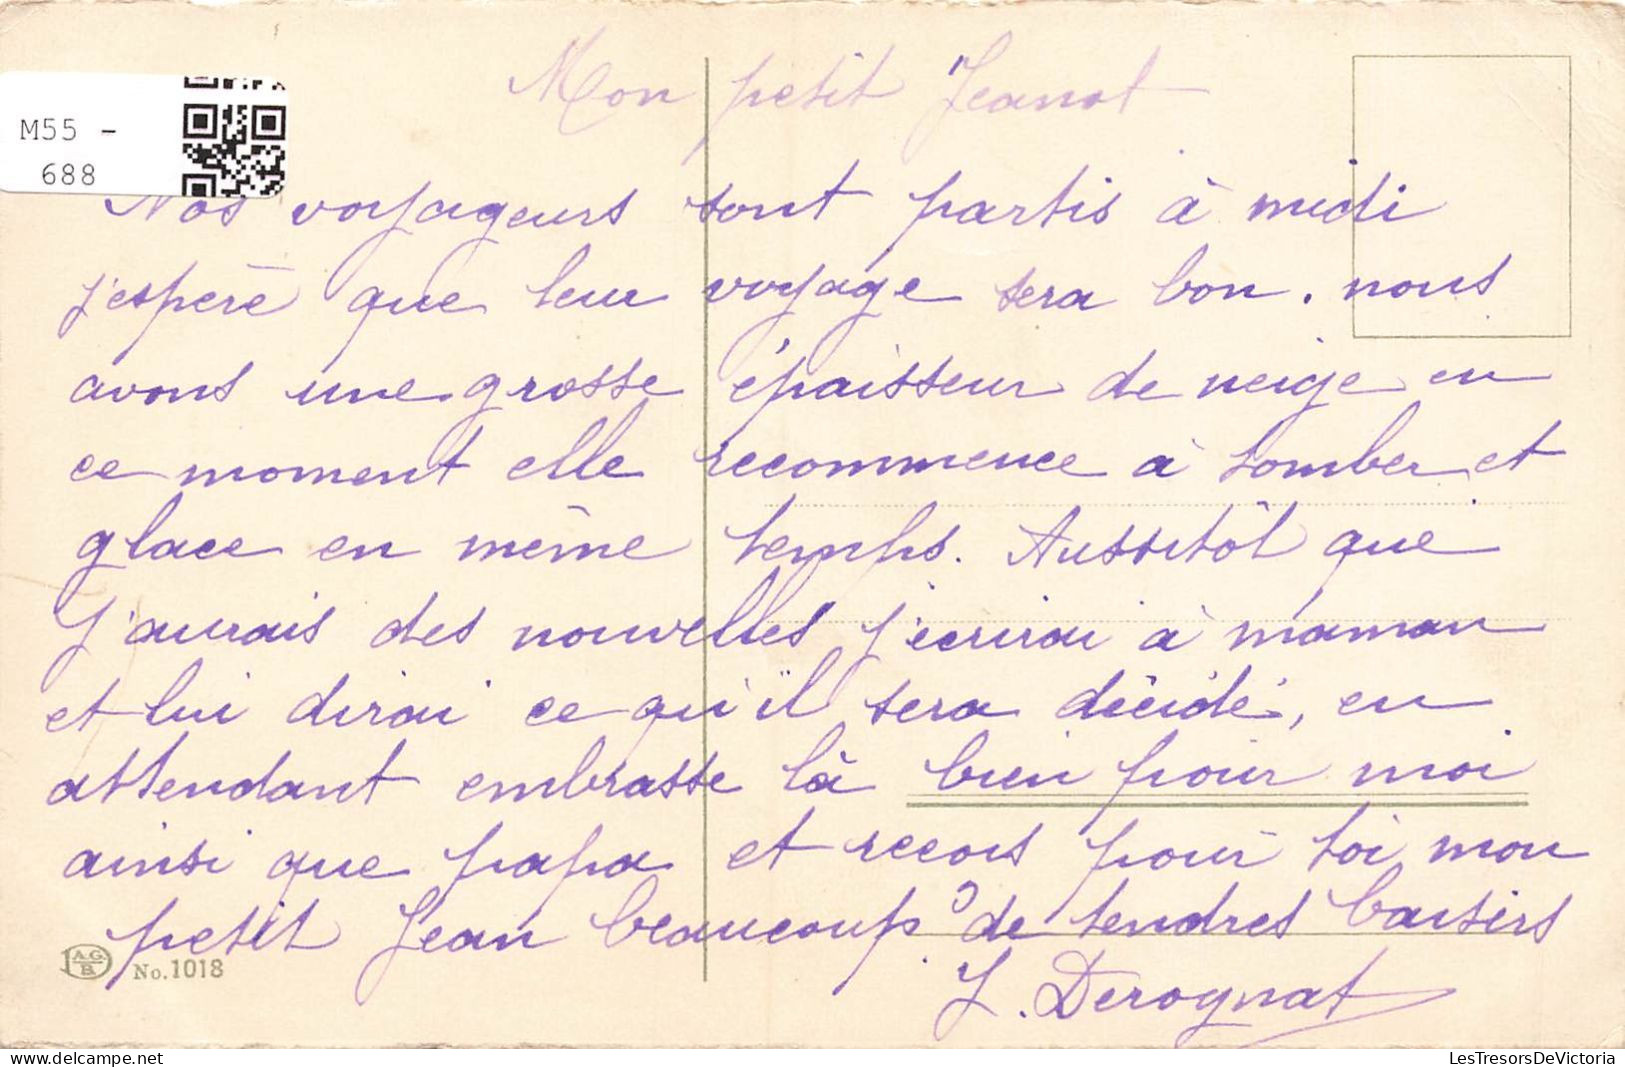 M55 -
688
Mon petit Jeanot
Nos voyageurs sont partis à midi
j'espère que leur voyage sera bon. nous
avons une grosse épaisseur de neige en
ce moment elle recommence à tomber et
glace en même temps. Aussitôt que
j'aurais des nouvelles j'écrirai à maman
et lui dirai ce qu'il sera décidé, en
attendant embrasse là bien pour moi
ainsi que papa et recois pour toi mon
petit Jean beaucoup de tendres baisers
J. Derognat
A.G.
B.
No.1018
LesTresorsDeVictoria